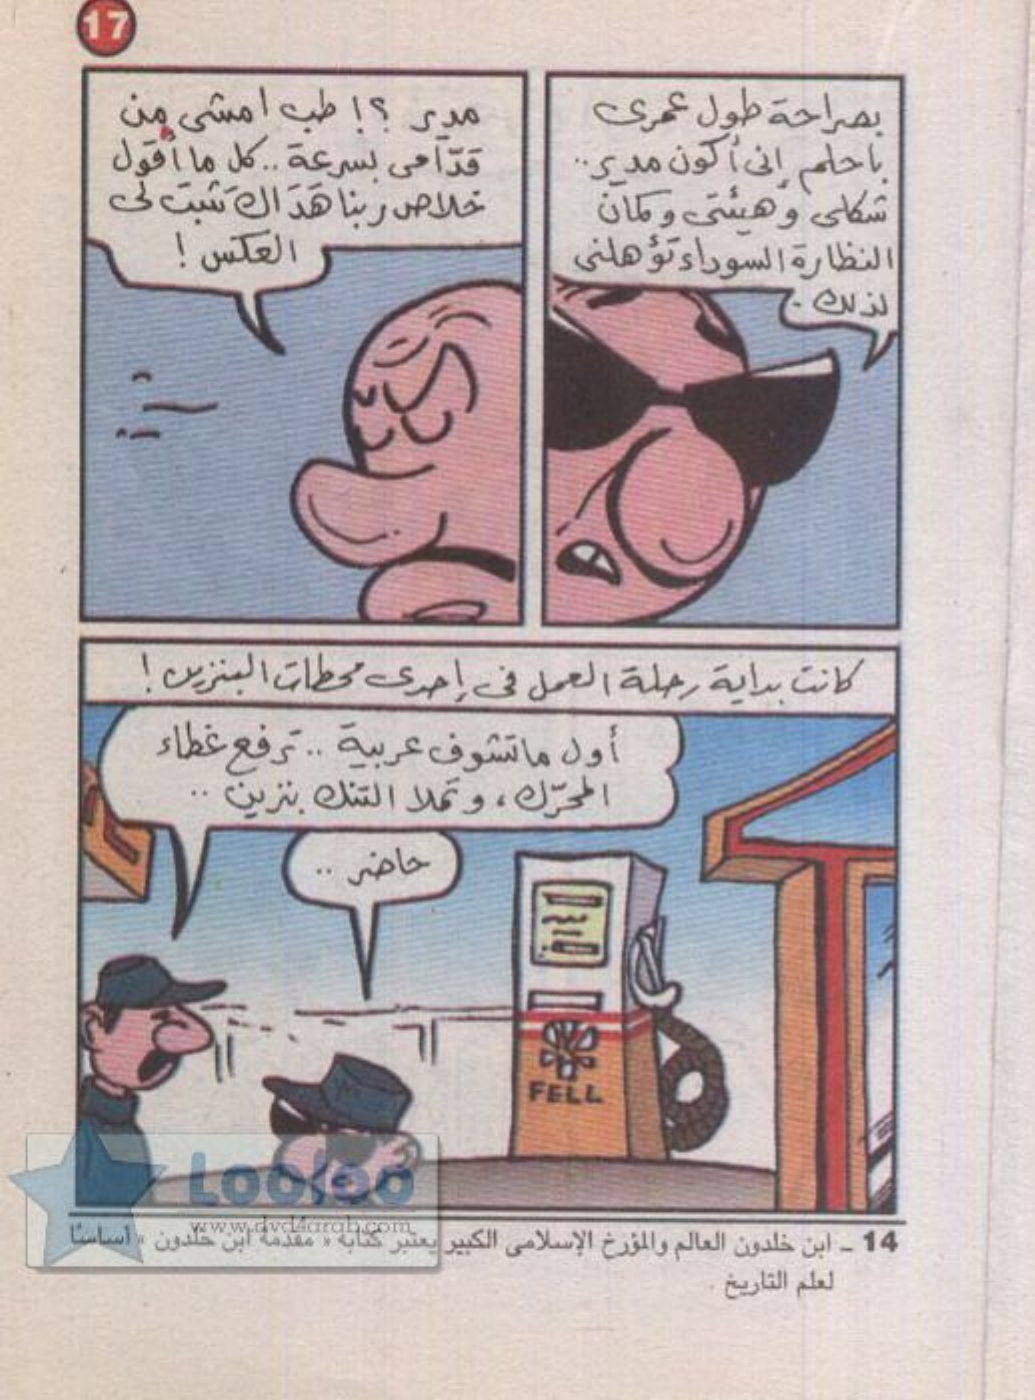 17
بصراحة طول عمرى
باحلم إنى أكون مدير..
شكلى وهيئتى وكمان
النظارة السوداء تؤهلنى
لذلك.
مدير ؟! طب امشى من
قدّامى بسرعة .. كل ما أقول
خلاص ربنا هَدَاك تثبت لى
العكس !
كانت بداية رحلة العمل فى إحدى محطات البنزين !
أول ما تشوف عربية .. ترفع غطاء
المحرّك، وتملا التنك بنزين ..
حاضر ..
FELL
14 ـ ابن خلدون العالم والمؤرخ الإسلامى الكبير يعتبر كتابة « مقدمة ابن خلدون » أساسًا
لعلم التاريخ .
Looloo
www.dvd4arab.com